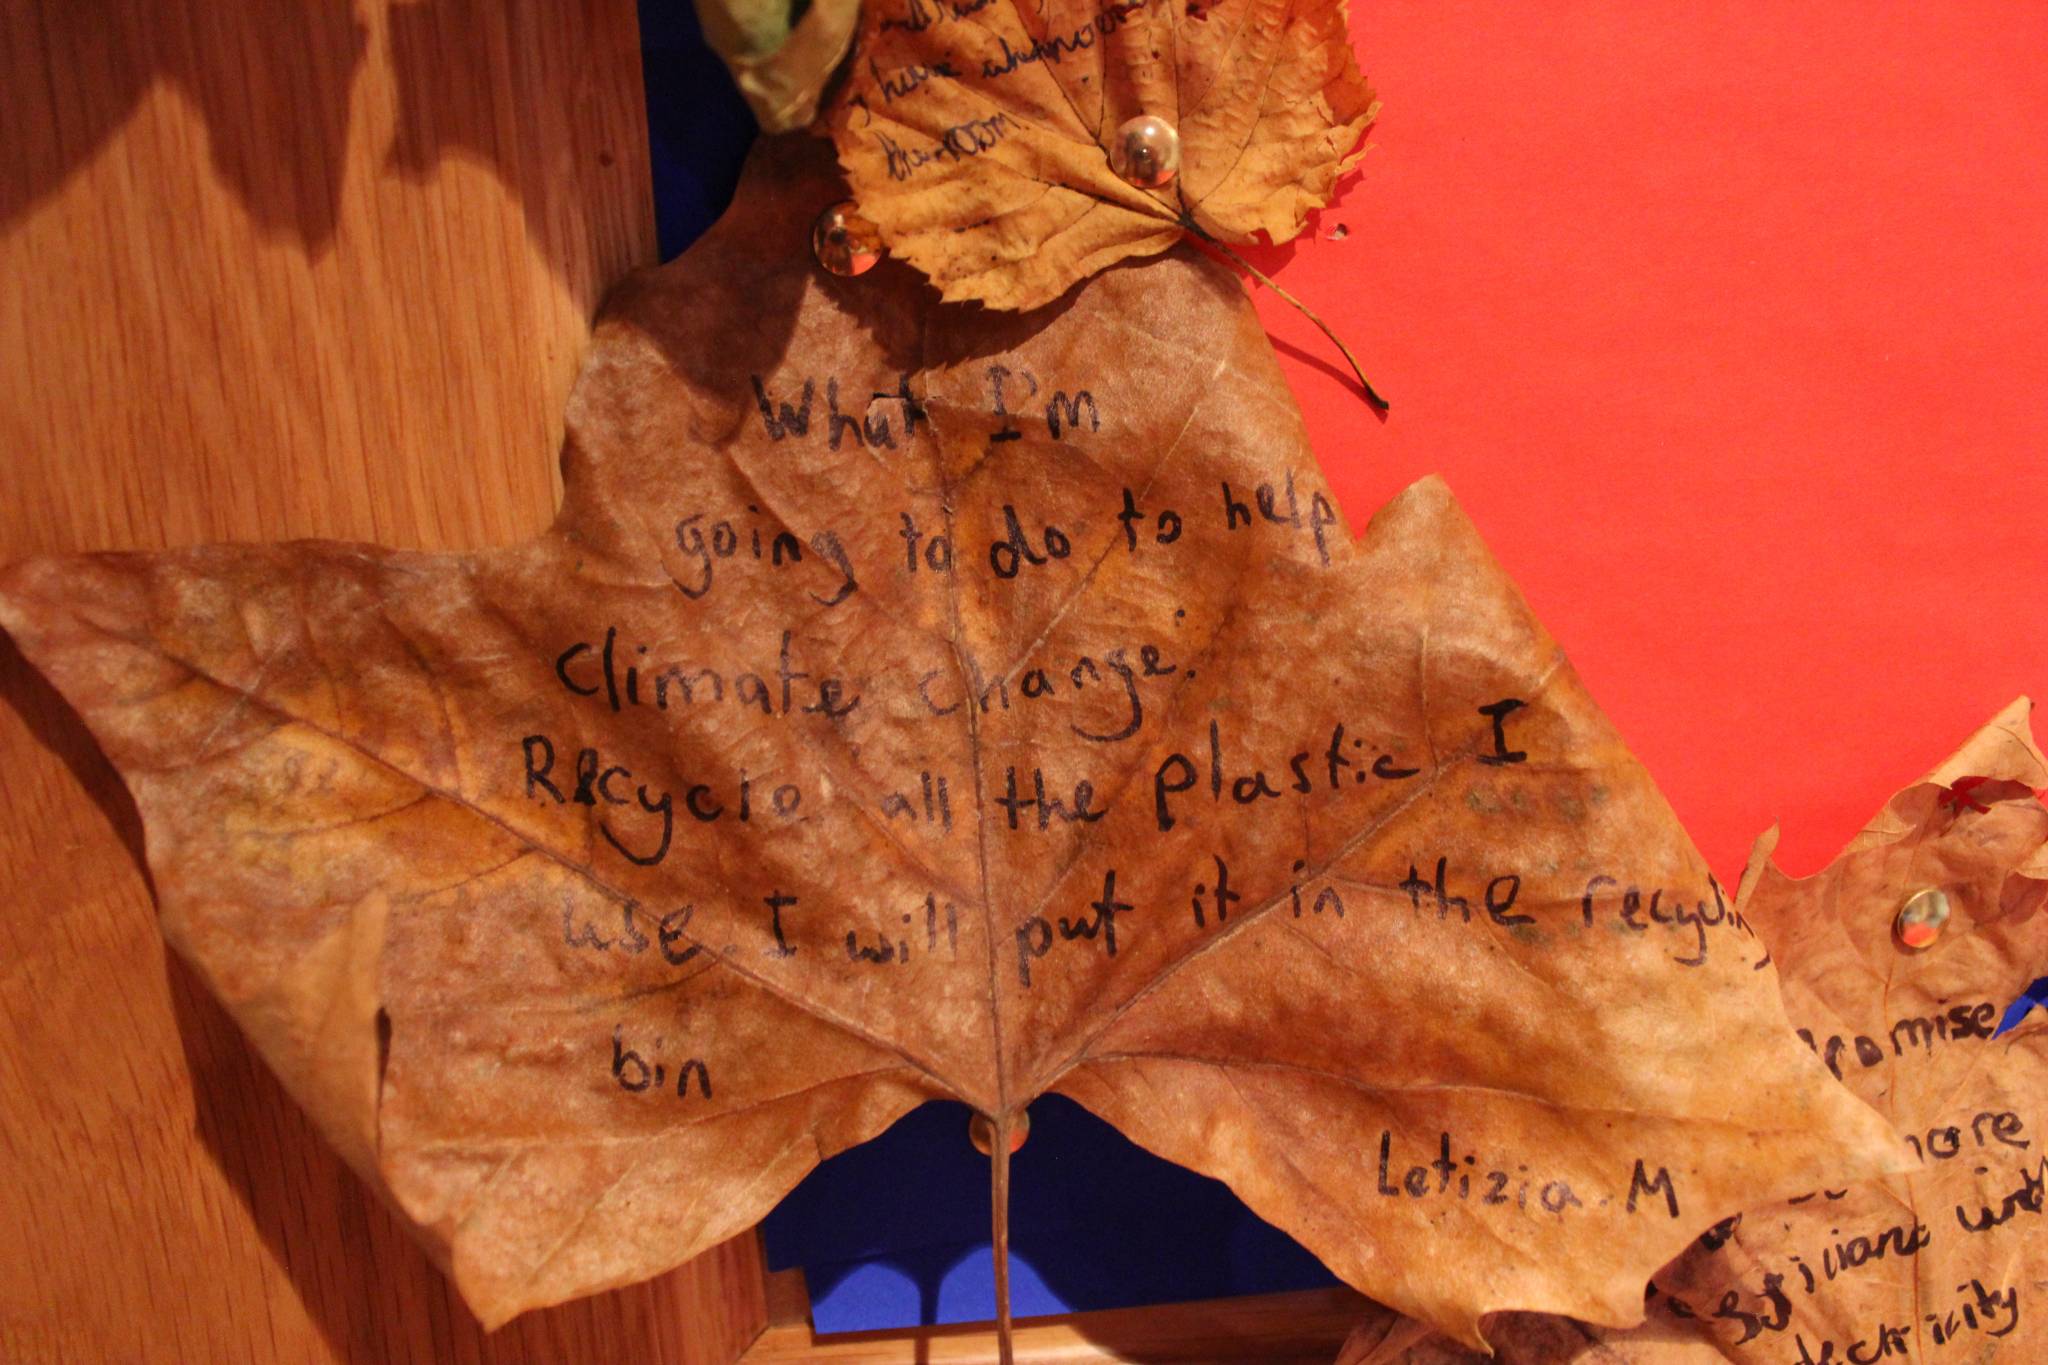 have
the room.
What I'm
going to do to help
climate change:
Recycle all the plastic I
use. I will put it in the recycling
bin
Letizia.M
promise
more
with
electricity